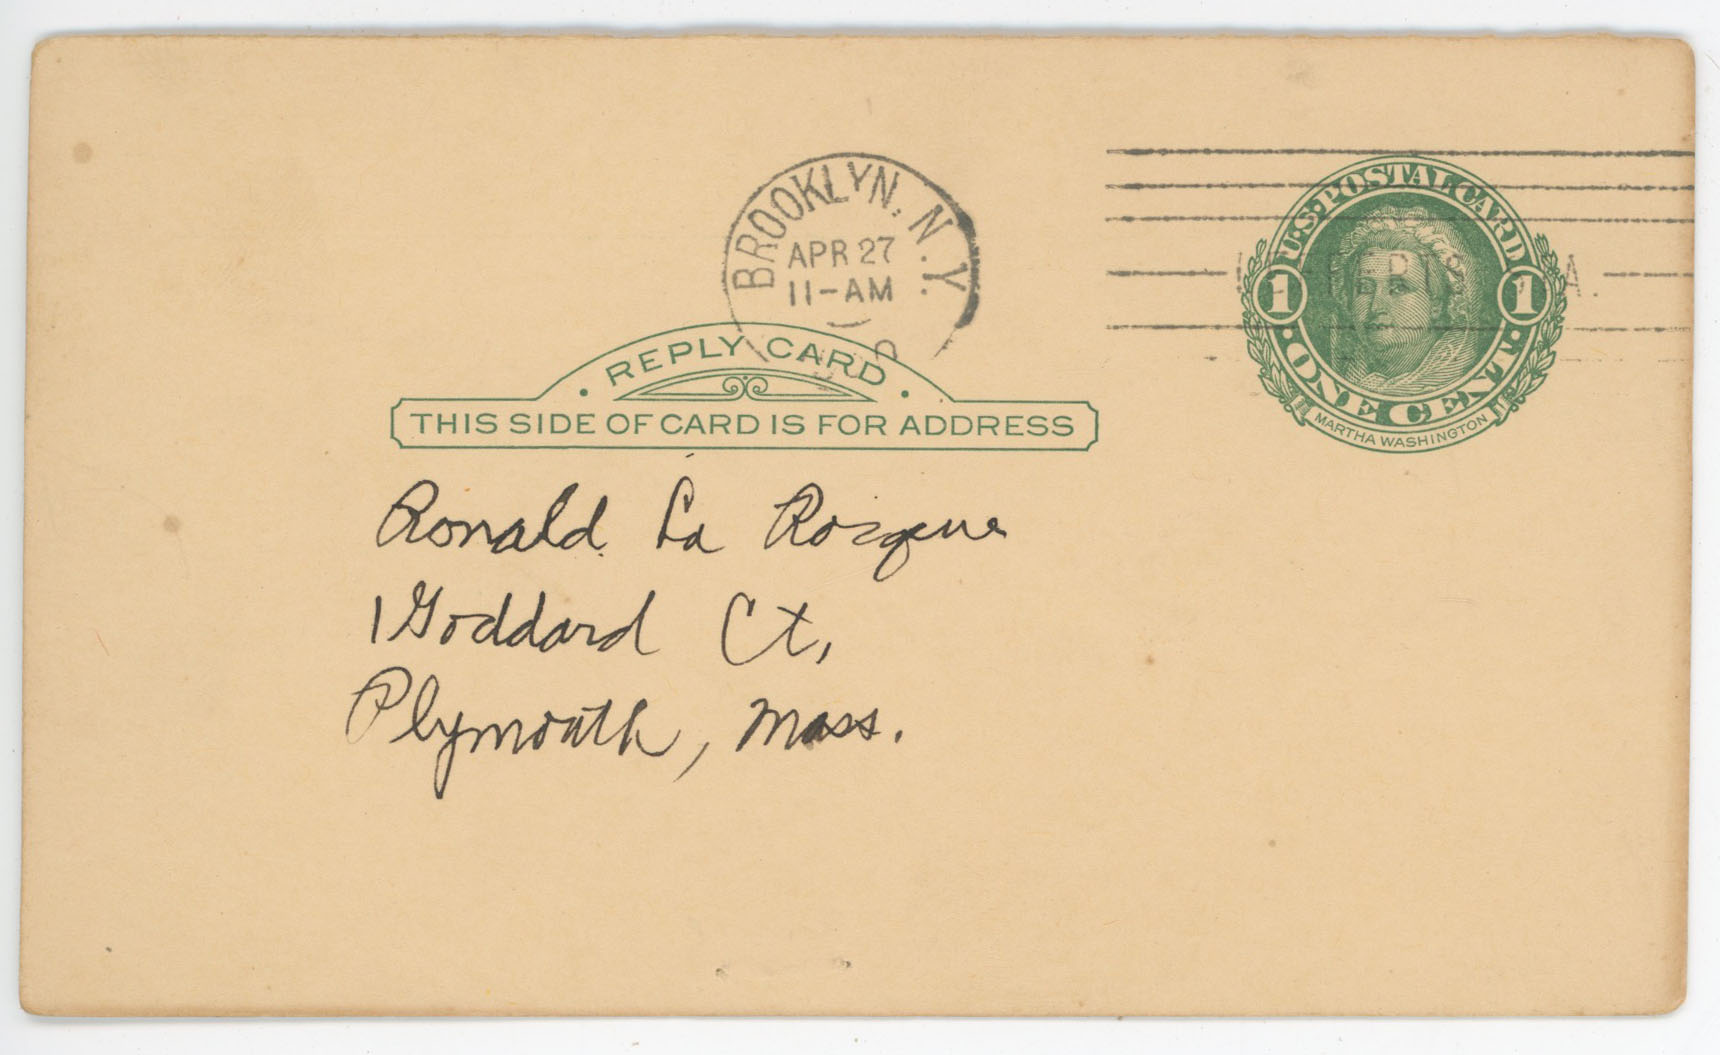 BROOKLYN, N.Y.
APR 27
11-AM
U.S. POSTAL CARD
1 1
ONE CENT
MARTHA WASHINGTON
REPLY CARD
THIS SIDE OF CARD IS FOR ADDRESS
Ronald La Rocque
1 Goddard Ct,
Plymouth, Mass.